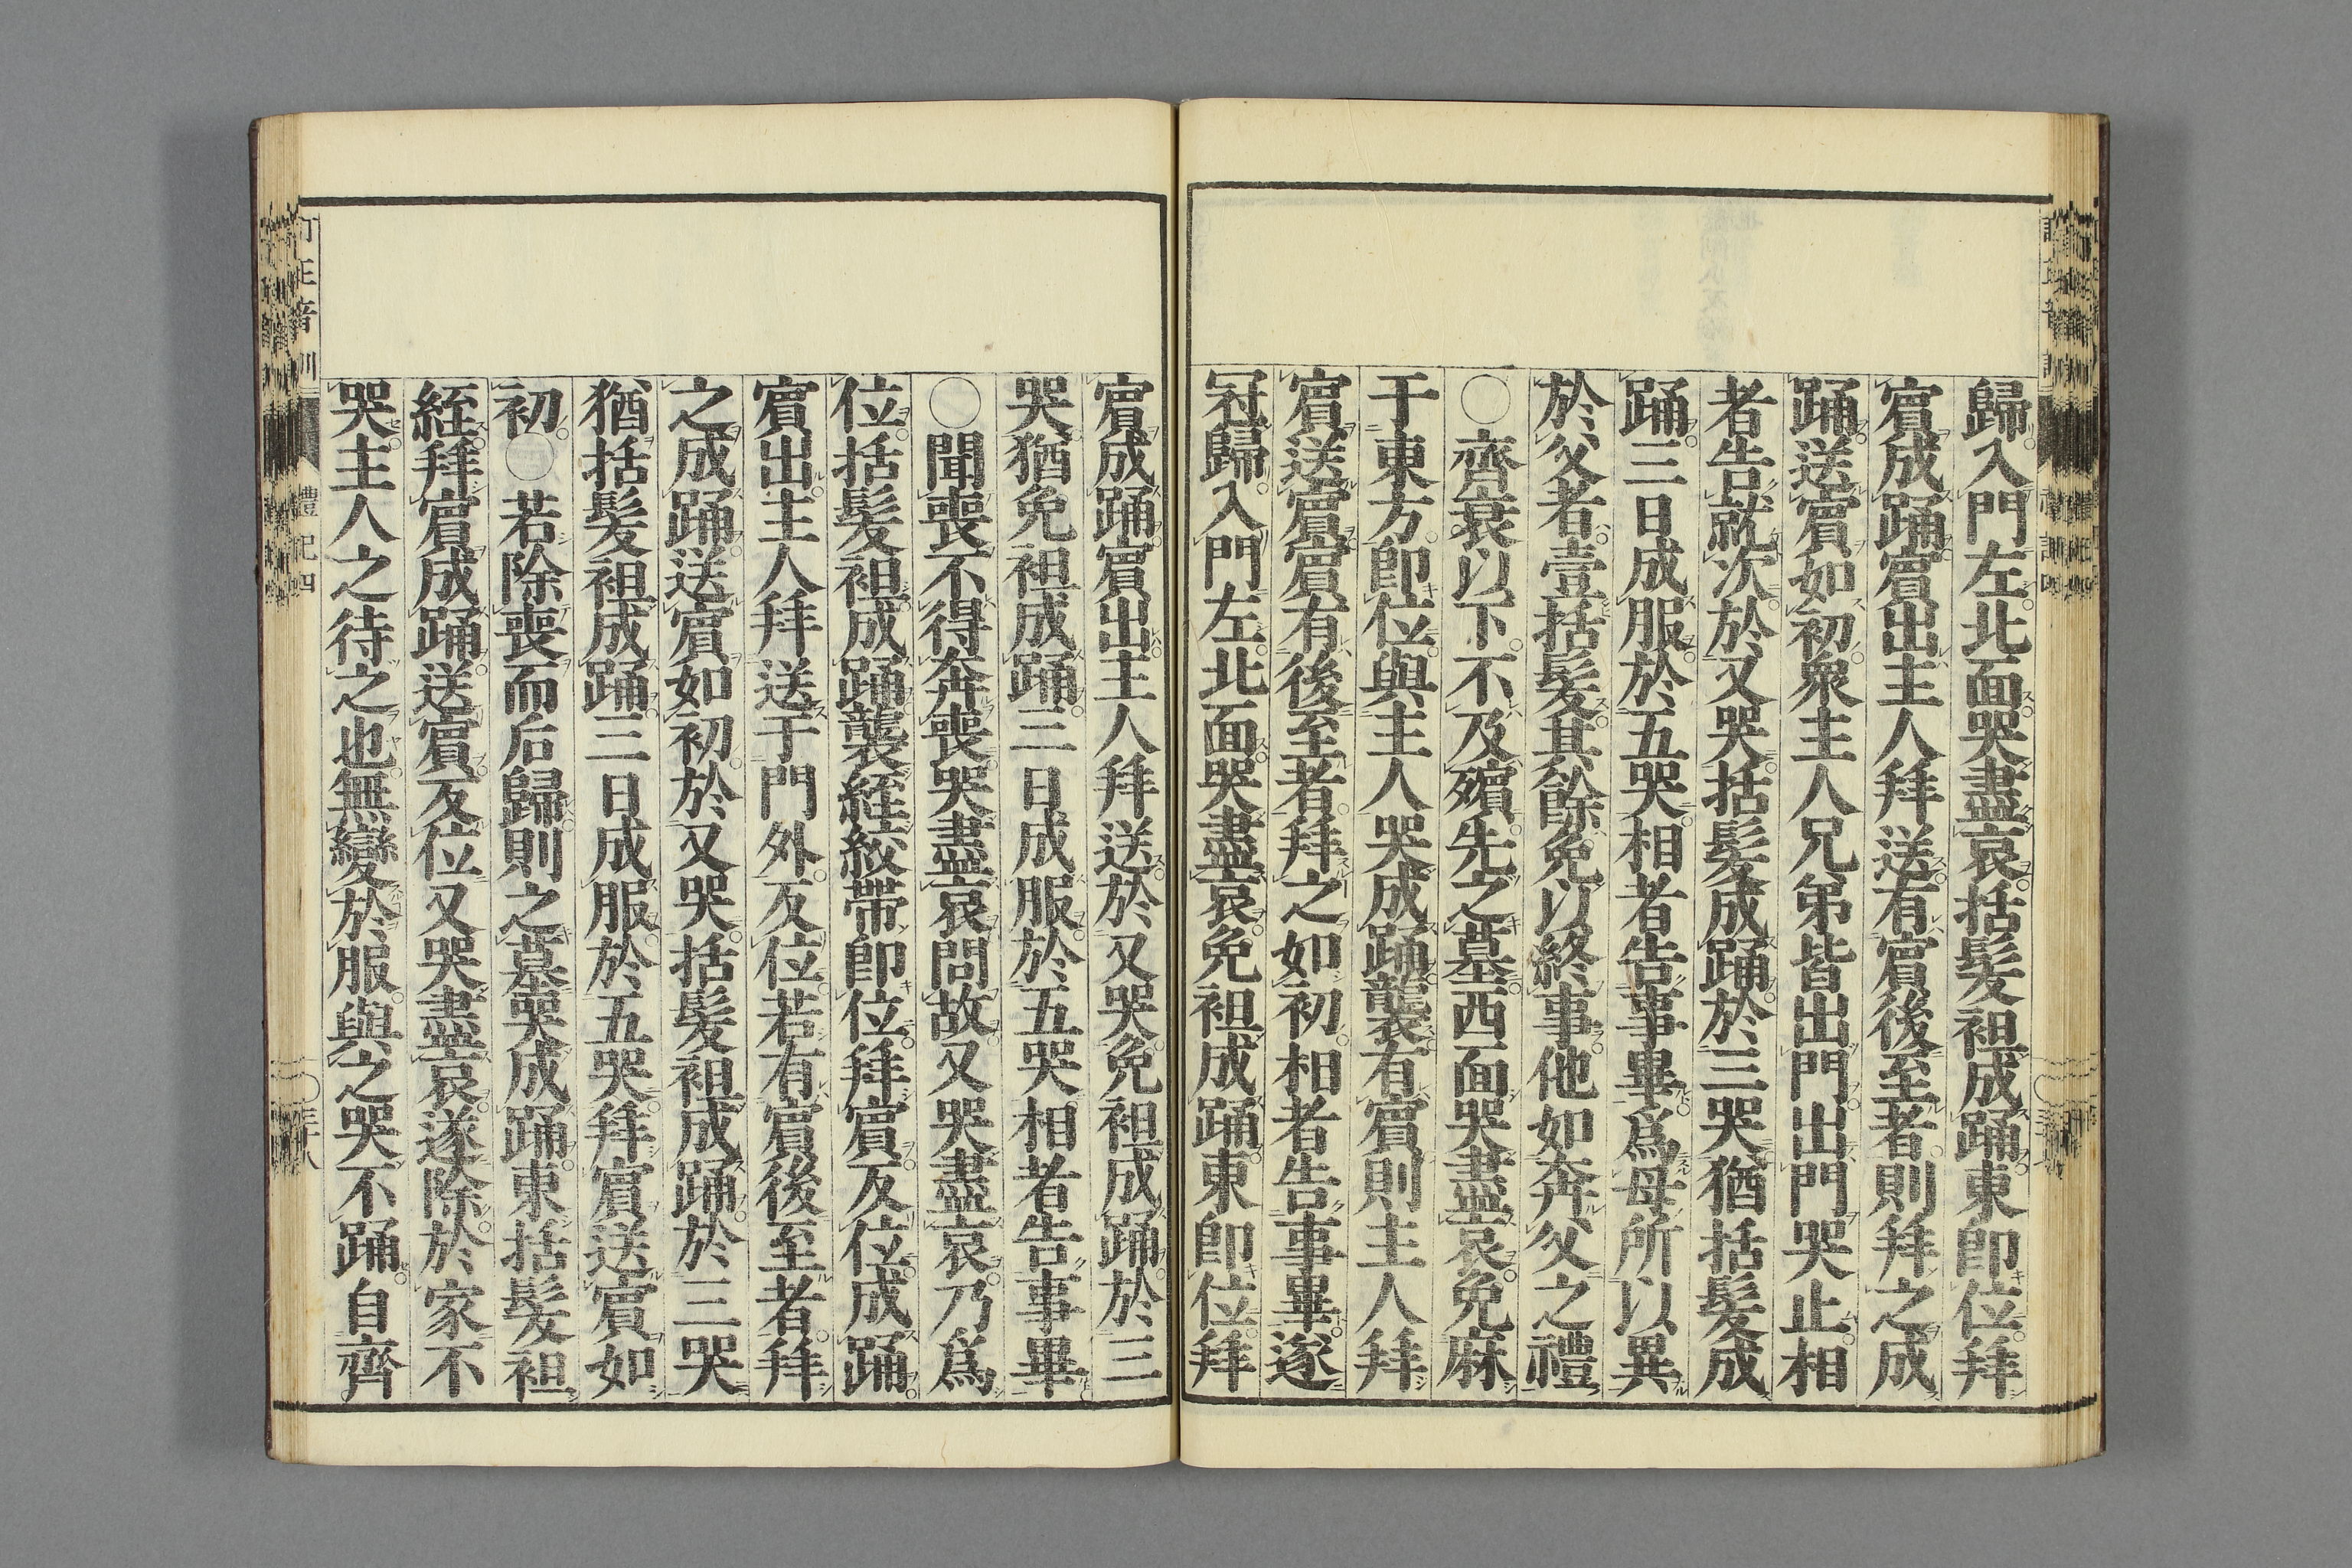 歸入門左北面哭盡哀括髮袒成踊東卽位拜
賔成踊賔出主人拜送有賔後至者則拜之成
踊送賔如初衆主人兄弟皆出門出門哭止相
者告就次於又哭括髮成踊於三哭猶括髮成
踊三日成服於五哭相者告事畢爲母所以異
於父者壹括髮其餘免以終事他如奔父之禮
○齊衰以下不及殯先之墓西面哭盡哀免麻
于東方卽位與主人哭成踊襲有賔則主人拜
賔送賔賔有後至者拜之如初相者告事畢遂
冠歸入門左北面哭盡哀免袒成踊東卽位拜
賔成踊賔出主人拜送於又哭免袒成踊於三
哭猶免袒成踊三日成服於五哭相者告事畢
○聞喪不得奔喪哭盡哀問故又哭盡哀乃爲
位括髮袒成踊襲絰絞帶卽位拜賔反位成踊
賔出主人拜送于門外反位若有賔後至者拜
之成踊送賔如初於又哭括髮袒成踊於三哭
猶括髮袒成踊三日成服於五哭拜賔送賔如
初○若除喪而后歸則之墓哭成踊東括髮袒
絰拜賔成踊送賔反位又哭盡哀遂除於家不
哭主人之待之也無變於服與之哭不踊自齊
訂正音訓 禮記四